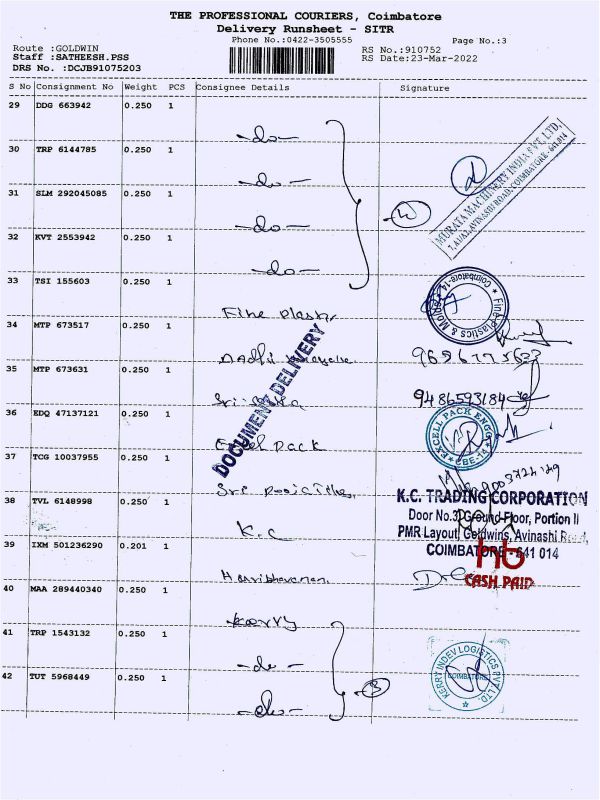 THE PROFESSIONAL COURIERS, Coimbatore
Delivery Runsheet - SITR
Phone No.:0422-3505555
Page No.:3
Route :GOLDWIN
RS No.:910752
Staff :SATHEESH.PSS
RS Date:23-Mar-2022
DRS No. :DCJB91075203
S No Consignment No Weight PCS Consignee Details Signature
29 DDG 663942 0.250 1
-do-
30 TRP 6144785 0.250 1
-do-
31 SLM 292045085 0.250 1
-do-
32 KVT 2553942 0.250 1
-do-
MURATA MACHINERY INDIA PVT. LTD.
AVINASHI ROAD, COIMBATORE - 641 014
33 TSI 155603 0.250 1
Fine Plastic
Fine Plastics & Moulds
Coimbatore-14
34 MTP 673517 0.250 1
35 MTP 673631 0.250 1
Sri
9486593184
DOCUMENT DELIVERY
36 EDQ 47137121 0.250 1
Excel Pack
EXCELL PACK ENGG
CBE-14
37 TCG 10037955 0.250 1
Sri
38 TVL 6148998 0.250 1
K.C
K.C. TRADING CORPORATION
Door No.3, Ground Floor, Portion II
PMR Layout, Goldwins, Avinashi Road,
COIMBATORE - 641 014
39 IXM 501236290 0.201 1
hb
CASH PAID
40 MAA 289440340 0.250 1
Kerry
41 TRP 1543132 0.250 1
-do-
42 TUT 5968449 0.250 1
-do-
3
KERRY INDEV LOGISTICS PVT. LTD.
COIMBATORE